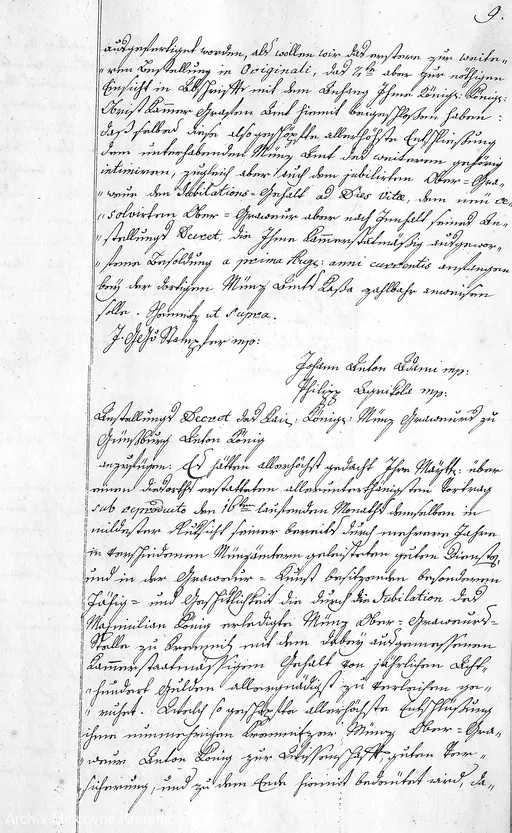 9.
ausgefertiget worden, als wollen wir das erstere zur weite-
ren Bestellung in Originali, das 2te aber zur nöthigen
Einsicht in Abschrifft mit dem Anhang Ihme Königl: Königl:
Obrist Kammer Grafen Amt hiemit beygeschlossen haben:
daß selbes diese also geschöpfte allerhöchste Entschliessung
dem unterhabenden Münz Amt des weiteren gehörig
intimiren, zugleich aber auch dem jubilirten Ober-Gra-
weur den Jubilations-Gehalt ad Dies Vitæ, dem neu re-
solvirten Ober-Graveur aber nach Innhalt seines An-
stellungs Decret, die Ihme Kammerstatmäßig ausgewor-
fene Besoldung a prima Aug: anni currentis anfangen
bey der dortigen Münz Amts Kaßa zahlbahr anweisen
solle. Schemnitz ut Supra.
J: Stampfer mp:
Johann Anton Adami mp:
Philipp Agrikola mp:
Anstellungs Decret des Kai: Königl: Münz Graveurs zu
Günsburg Anton König
anzufügen: Es hätten allerhöchst gedacht Ihro Maytt: über
einen diesorths erstatteten allerunterthänigsten Vortrag
sub reproducto den 16ten lauffenden Monaths demselben in
mildester Rüksicht seiner bereits durch mehrere Jahre
in verschiedenen Münzämtern geleisteten guten Dienste,
und in der Graveur-Kunst besitzenden besonderen
Fähig- und Geschiklichkeit die durch die Jubilation des
Maximilian König erledigte Münz Ober-Graveurs-
Stelle zu Kremnitz mit dem dabey ausgemessenen
Kammerstaatmässigen Gehalt von jährlichen Acht-
hundert Gulden allergnädigst zu verleihen ge-
ruhet. Welch so geschöpfte allerhöchste Entschlüssung
ihme nunmehrigen Kremnitzer Münz Ober-Gra-
weur Anton König zur Wissenschafft, guten Ver-
sicherung, und zu dem Ende hiemit bedeutet wird, da-
Archiv Mincovne Kremnica